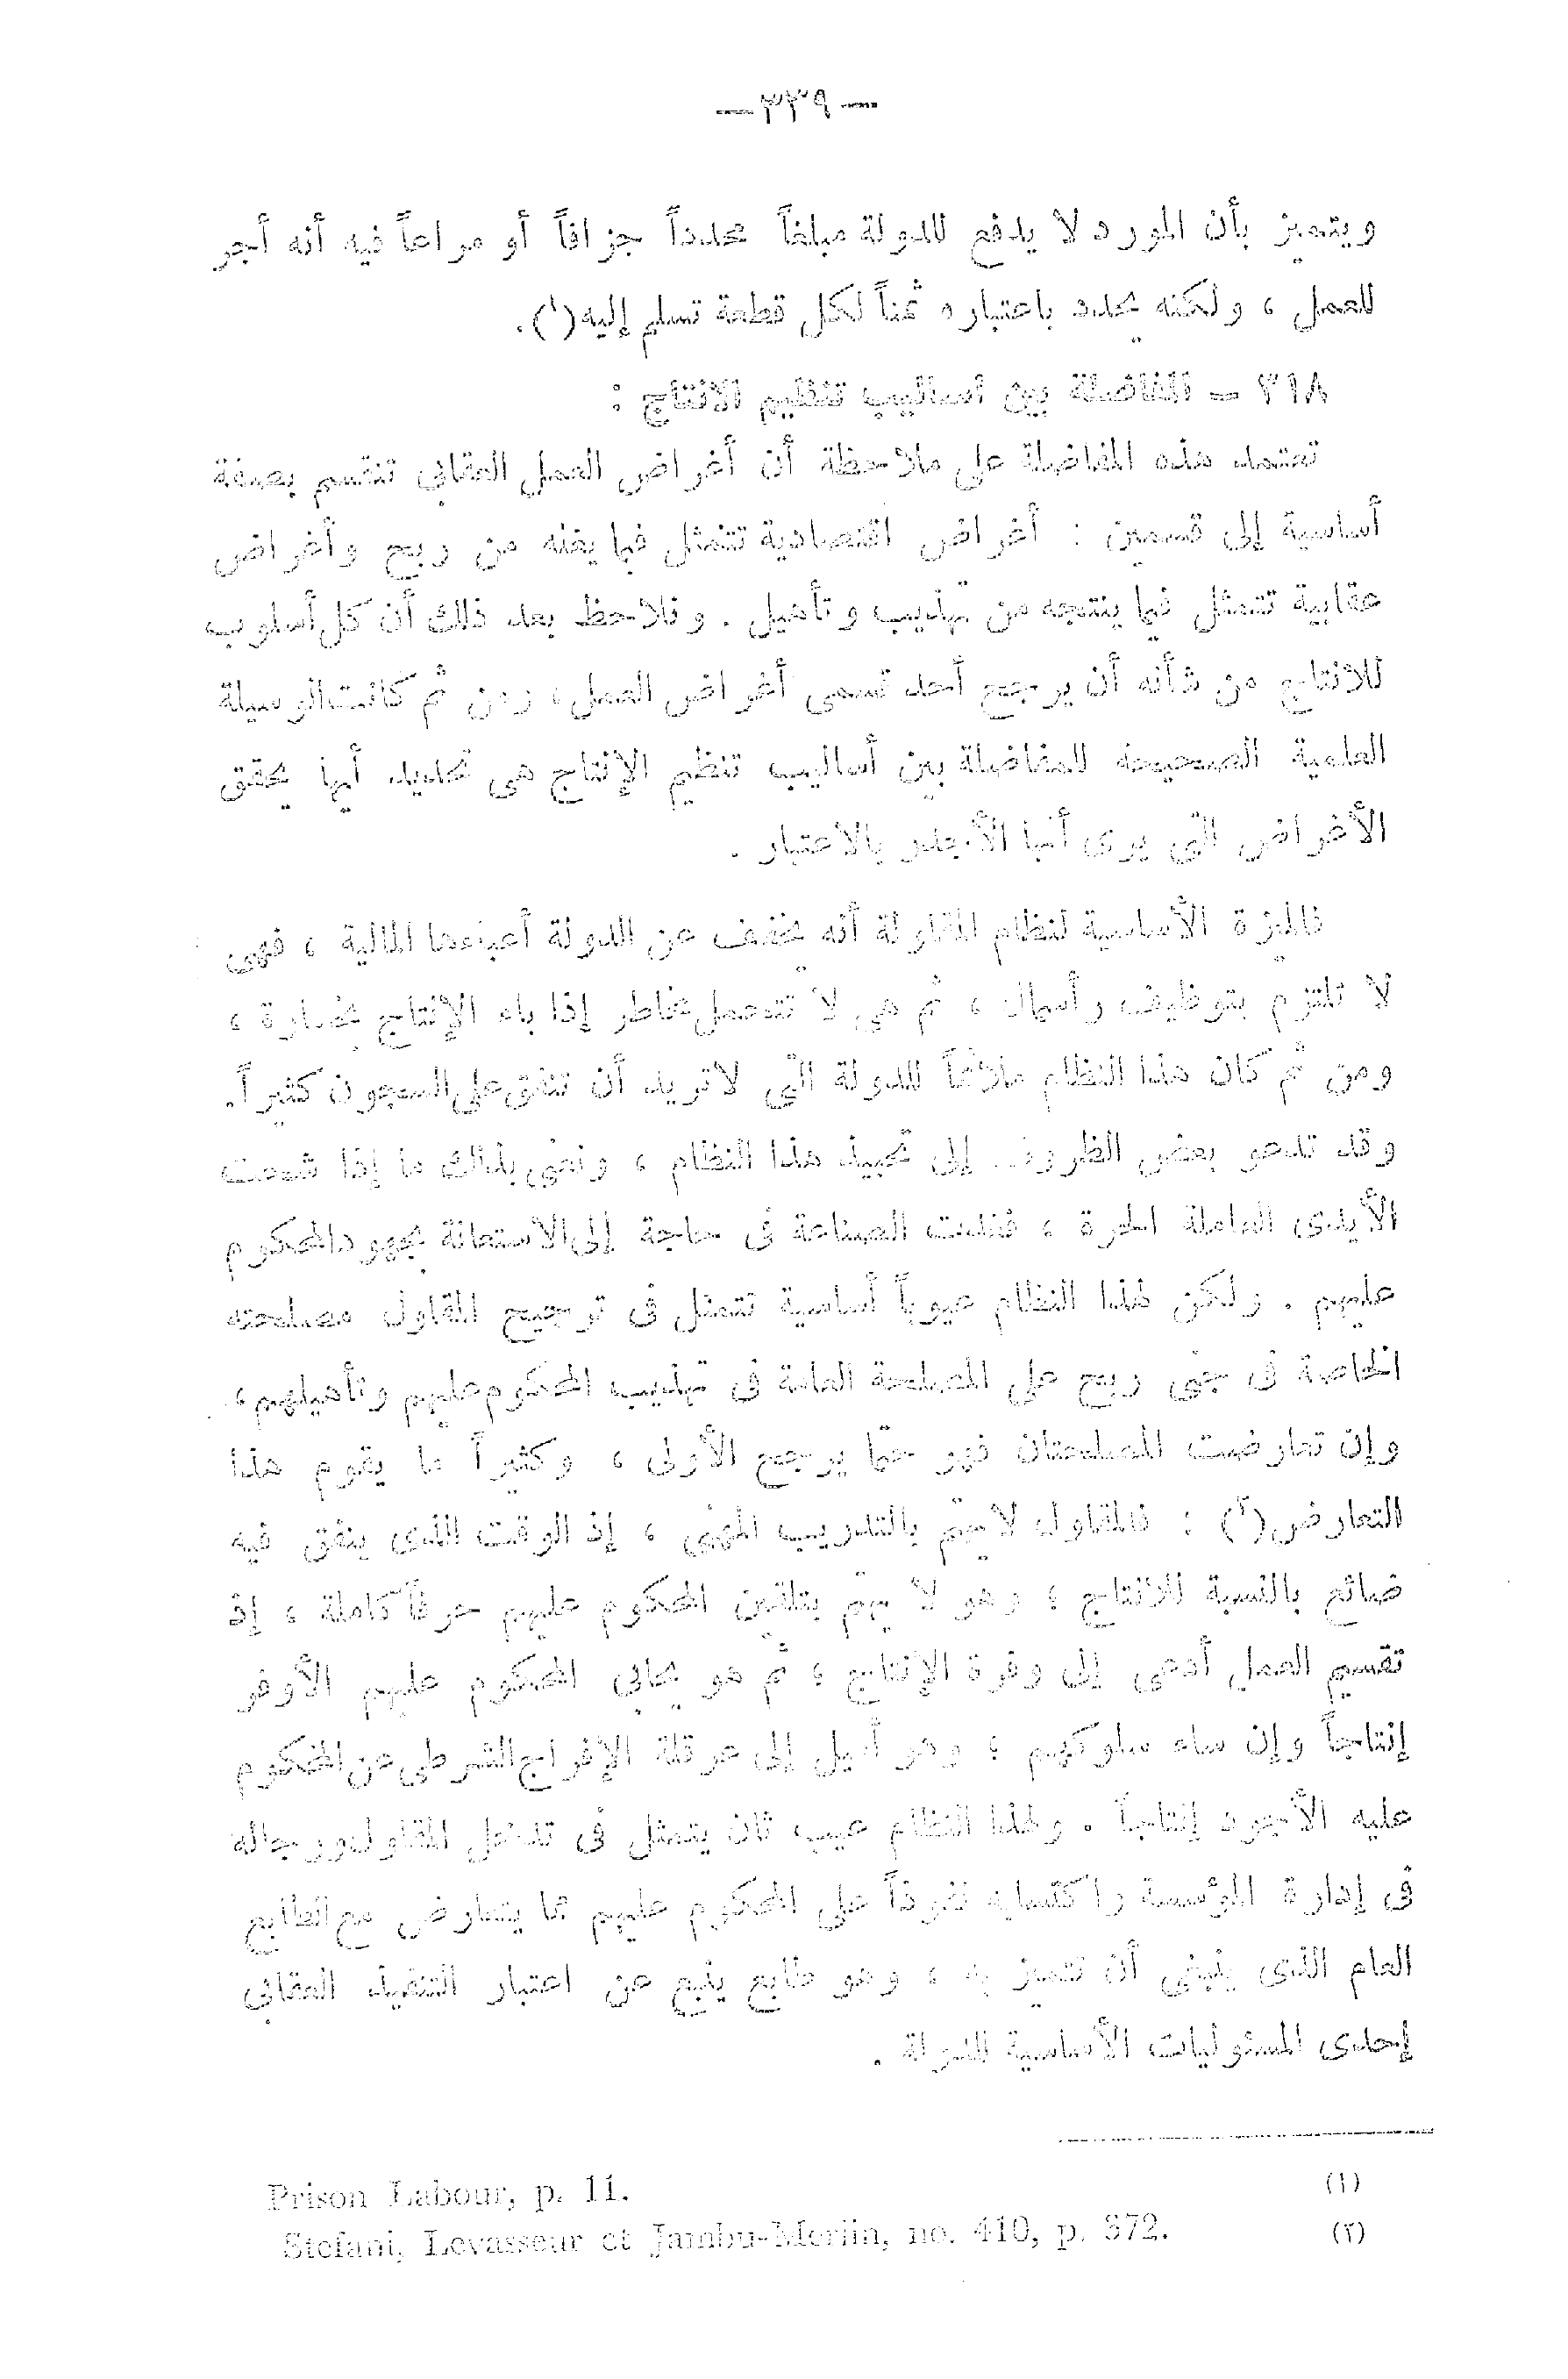 — ٣٣٩ —
ويتميز بأن المورد لا يدفع للدولة مبلغاً محدداً جزافاً أو مراعاً فيه أنه أجر
للعمل ، ولكنه يحدد باعتباره ثمناً لكل قطعة تسلم إليه(١).
٣١٨ – المفاضلة بين أساليب تنظيم الانتاج :
تعتمد هذه المفاضلة على ملاحظة أن أغراض العمل العقابى تنقسم بصفة
أساسية إلى قسمين : أغراض اقتصادية تتمثل فيما يغله من ربح وأغراض
عقابية تتمثل فيما ينتجه من تهذيب وتأهيل . ونلاحظ بعد ذلك أن كل أسلوب
للانتاج من شأنه أن يرجح أحد قسمى أغراض العمل ، ومن ثم كانت الوسيلة
العلمية الصحيحة للمفاضلة بين أساليب تنظيم الإنتاج هى تحديد أيها يحقق
الأغراض التى يرى أنها الأجدر بالاعتبار .
فالميزة الأساسية لنظام المقاولة أنه يخفف عن الدولة أعباءها المالية ، فهى
لا تلتزم بتوظيف رأسمال ، ثم هى لا تتحمل مخاطر إذا باء الإنتاج بخسارة ،
ومن ثم كان هذا النظام ملائماً للدولة التى لا تريد أن تنفق على السجون كثيراً.
وقد تدعو بعض الظروف إلى تحبيذ هذا النظام ، ونعنى بذلك ما إذا شحت
الأيدى العاملة الحرة ، فغدت الصناعة فى حاجة إلى الاستعانة بجهود المحكوم
عليهم . ولكن لهذا النظام عيوباً أساسية تتمثل فى ترجيح المقاول مصلحته
الخاصة فى جنى ربح على المصلحة العامة فى تهذيب المحكوم عليهم وتأهيلهم ،
وإن تعارضت المصلحتان فهو حتما يرجح الأولى ، وكثيراً ما يقوم هذا
التعارض(٢) : فالمقاول لا يهتم بالتدريب المهنى ، إذ الوقت الذى ينفق فيه
ضائع بالنسبة للانتاج ، وهو لا يهتم بتلقين المحكوم عليهم حرفاً كاملة ، إذ
تقسيم العمل أدعى إلى وفرة الإنتاج ، ثم هو يحابى المحكوم عليهم الأوفر
إنتاجاً وإن ساء سلوكهم ، وهو أميل إلى عرقلة الإفراج الشرطى عن المحكوم
عليه الأجود إنتاجاً . ولهذا النظام عيب ثان يتمثل فى تدخل المقاول ورجاله
فى إدارة المؤسسة واكتسابه نفوذاً على المحكوم عليهم مما يتعارض مع الطابع
العام الذى ينبغى أن تتميز به ، وهو طابع ينبع عن اعتبار التنفيذ العقابى
إحدى المسئوليات الأساسية للدولة .
(١) Prison Labour, p. 11.
(٢) Stefani, Levasseur et Jambu-Merlin, no. 410, p. 372.